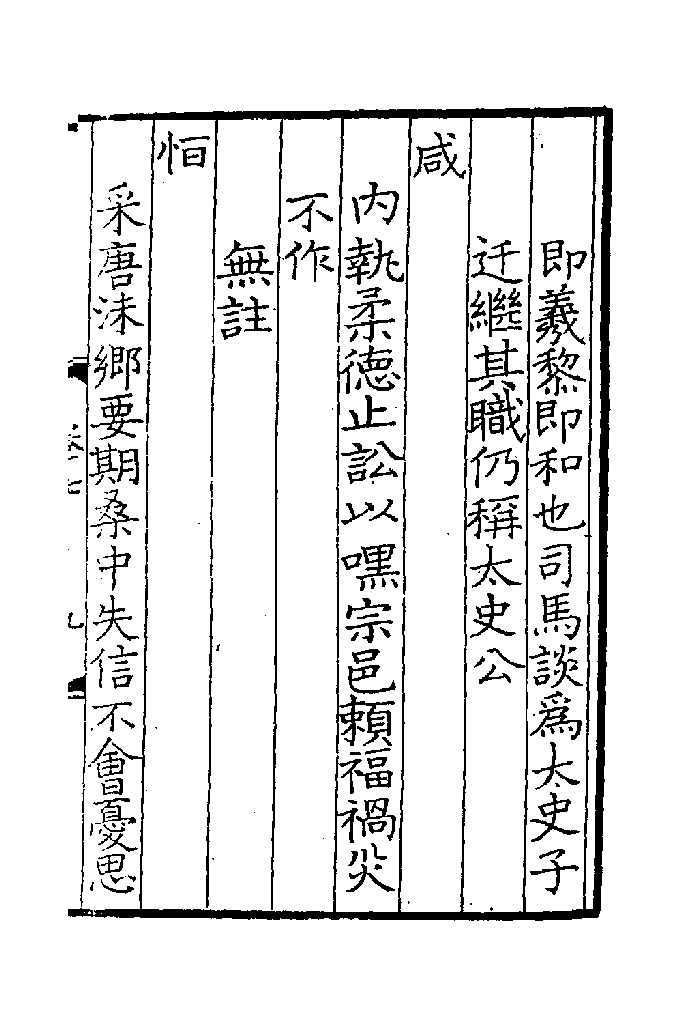 即羲黎即和也司馬談爲太史子
迁繼其職仍稱太史公
咸
内執柔德止訟以嘿宗邑賴福禍灾
不作
無註
恒
采唐沬鄉要期桑中失信不會憂思